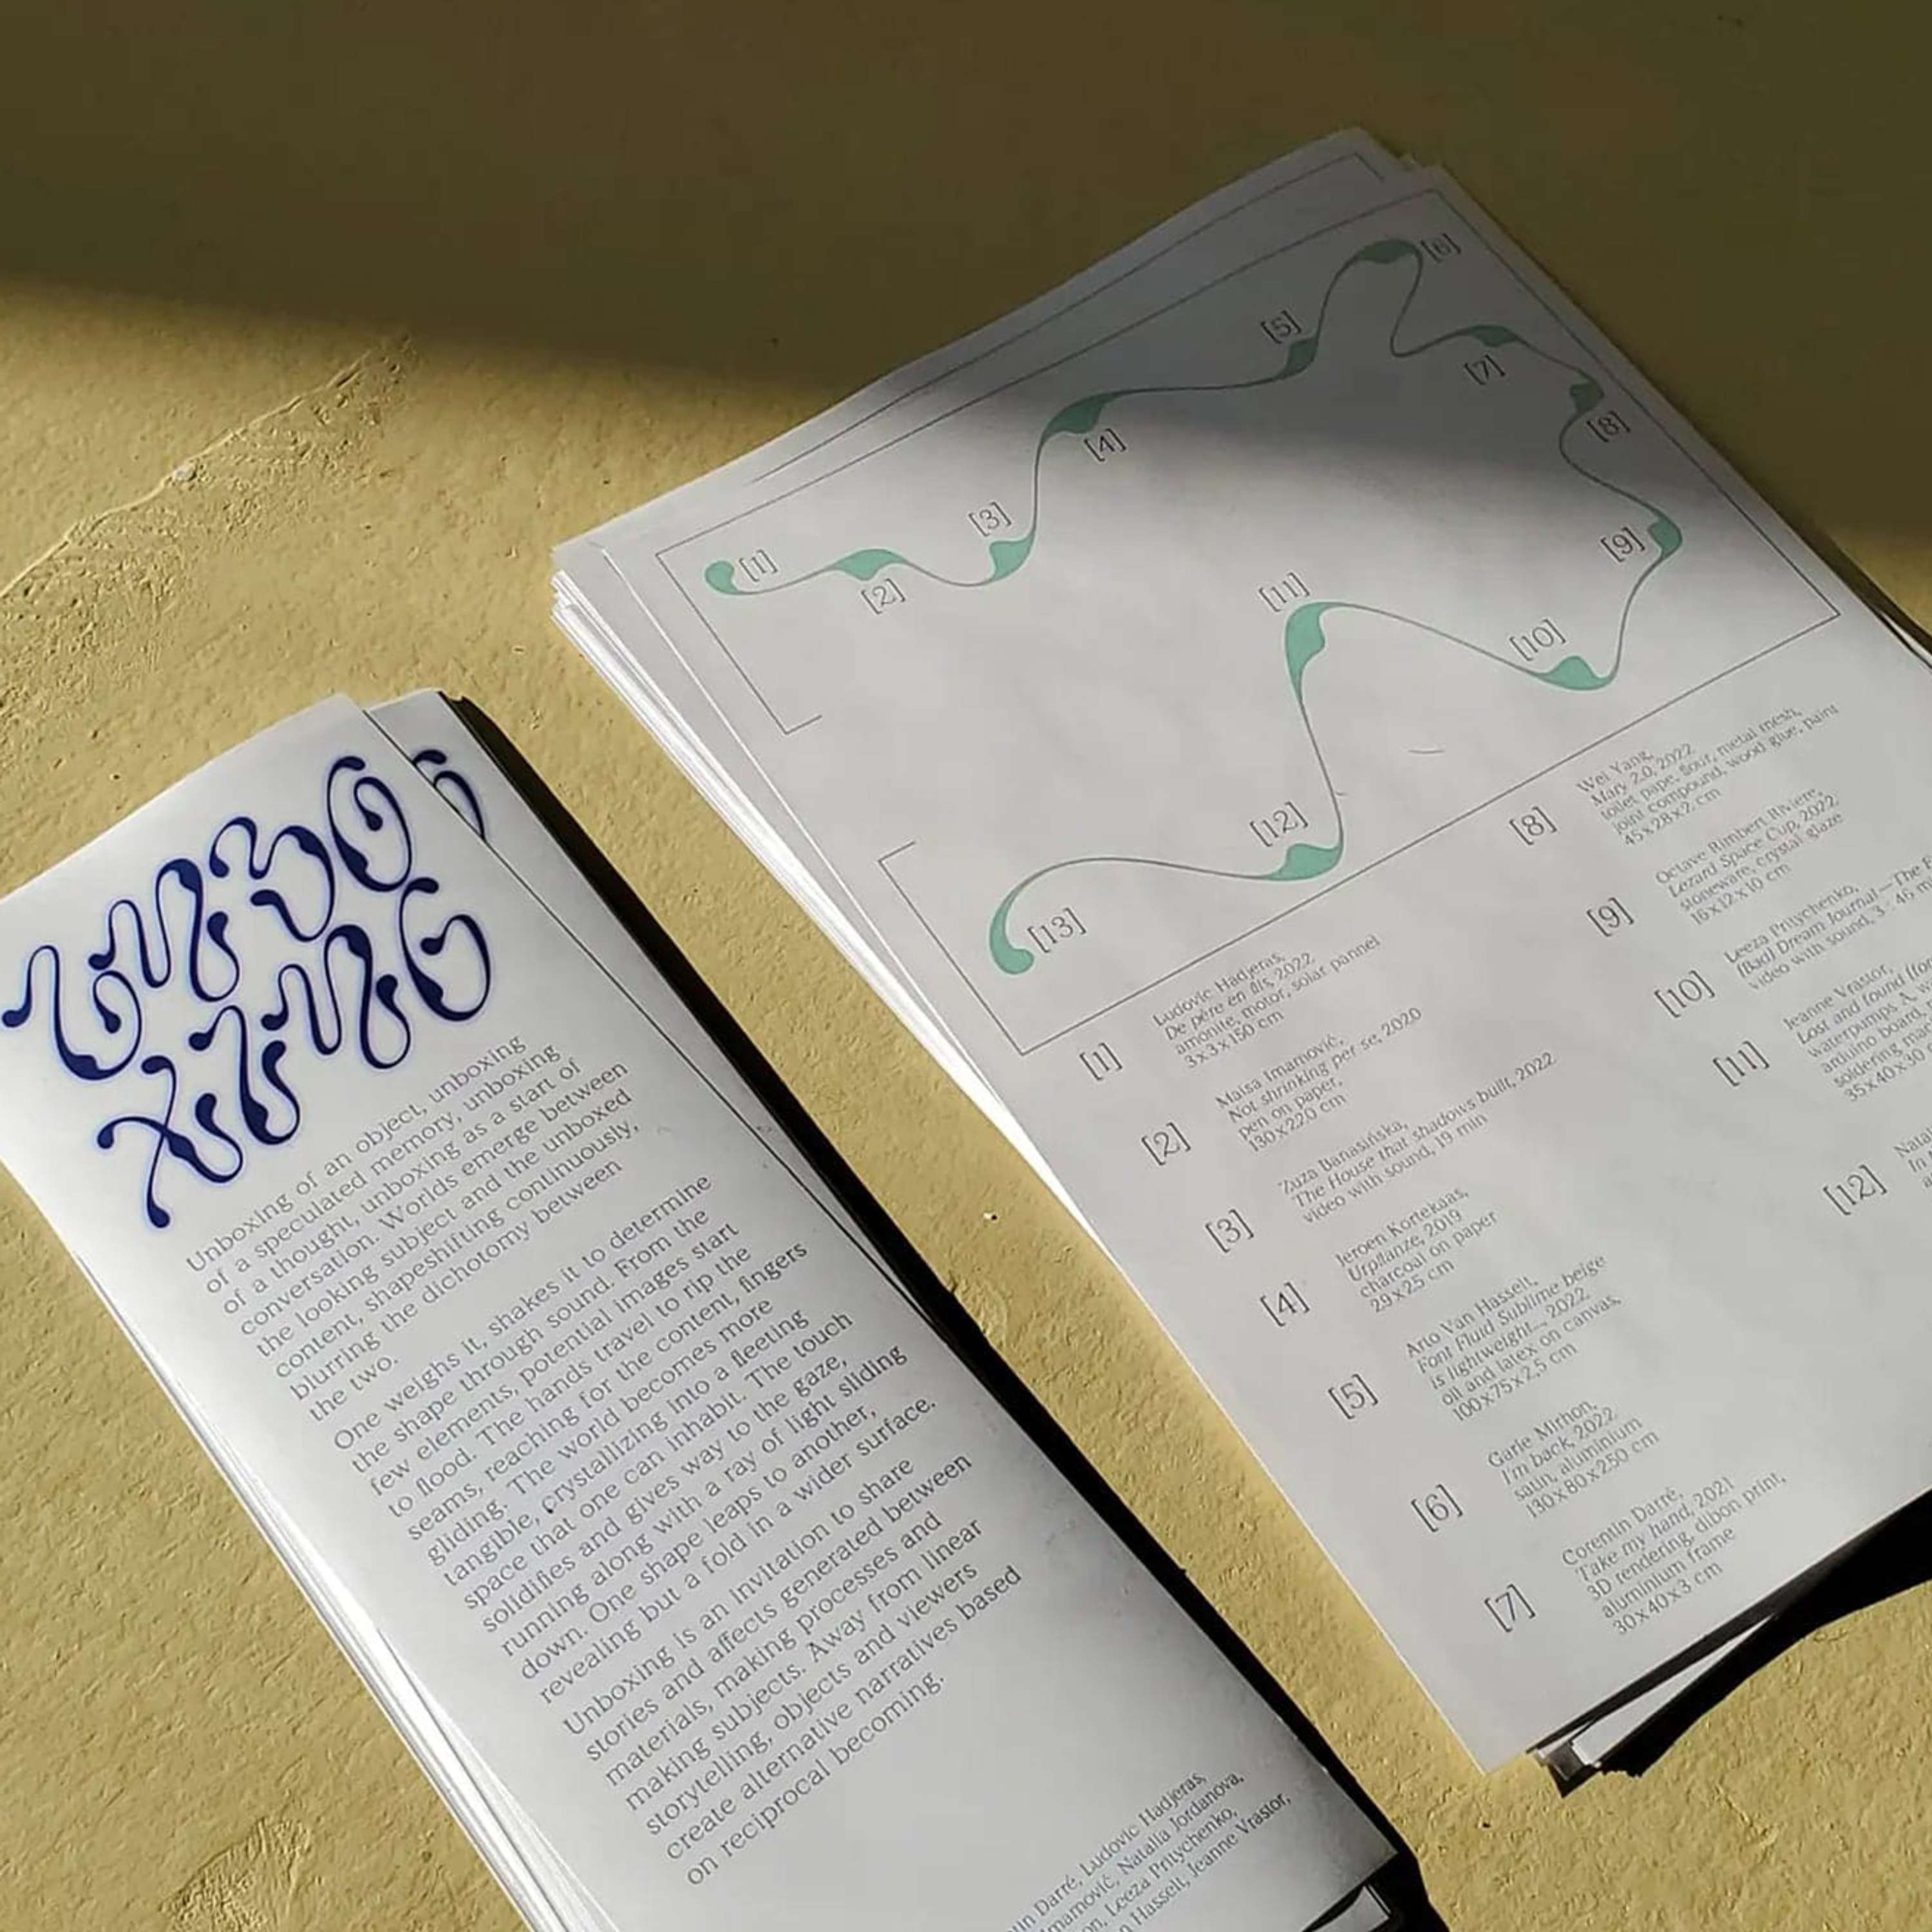 UNBO
XING
Unboxing of an object, unboxing
of a speculated memory, unboxing
of a thought, unboxing as a start of
conversation. Worlds emerge between
the looking subject and the unboxed
content, shapeshifting continuously,
blurring the dichotomy between
the two.
One weighs it, shakes it to determine
the shape through sound. From the
few elements, potential images start
to flood. The hands travel to rip the
seams, reaching for the content, fingers
gliding. The world becomes more
tangible, crystallizing into a fleeting
space that one can inhabit. The touch
solidifies and gives way to the gaze,
running along with a ray of light sliding
down. One shape leaps to another,
revealing but a fold in a wider surface.
Unboxing is an invitation to share
stories and affects generated between
materials, making processes and
making subjects. Away from linear
storytelling, objects and viewers
create alternative narratives based
on reciprocal becoming.
Darré, Ludovic Hadjeras,
Imamović, Natalia Jordanova,
Leeza Pritychenko,
Hasselt, Jeanne Vrastor,
[1]
[2]
[3]
[4]
[5]
[6]
[7]
[8]
[9]
[10]
[11]
[12]
[13]
[1]
Ludovic Hadjeras,
De père en fils, 2022
amonite, motor, solar pannel
3x3x150 cm
[2]
Maisa Imamović,
Not shrinking per se, 2020
pen on paper,
130x220 cm
[3]
Zuza Banasińska,
The House that shadows built, 2022
video with sound, 19 min
[4]
Jeroen Kortekaas,
Urpflanze, 2019
charcoal on paper
29x25 cm
[5]
Arto Van Hasselt,
Font Fluid Sublime beige
is lightweight—, 2022
oil and latex on canvas,
100x75x2,5 cm
[6]
Garie Mirhon,
I'm back, 2022
satin, aluminium
130x80x250 cm
[7]
Corentin Darré,
Take my hand, 2021
3D rendering, dibon print,
aluminium frame
30x40x3 cm
[8]
Wei Yang,
Mary 2.0, 2022
toilet paper, flour, metal mesh,
joint compound, wood glue, paint
45x28x2 cm
[9]
Octave Rimbert Rivière,
Lezard Space Cup, 2022
stoneware, crystal glaze
16x12x10 cm
[10]
Leeza Pritychenko,
[Bad] Dream Journal—The
video with sound, 3
[11]
Jeanne Vrastor,
Lost and found
waterpumps,
arduino board,
soldering
35x40x30
[12]
In